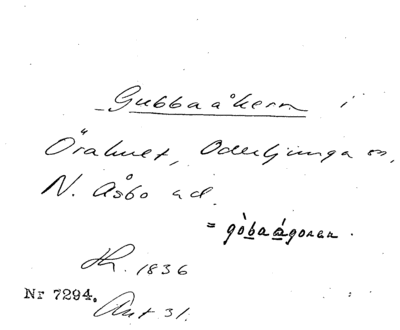 Gubbaåkern i
Örahult, Oderljunga sn,
N. Åsbo hd.
= gòbaágoren.
Lh. 1836
Nr 7294.
Ant 31.